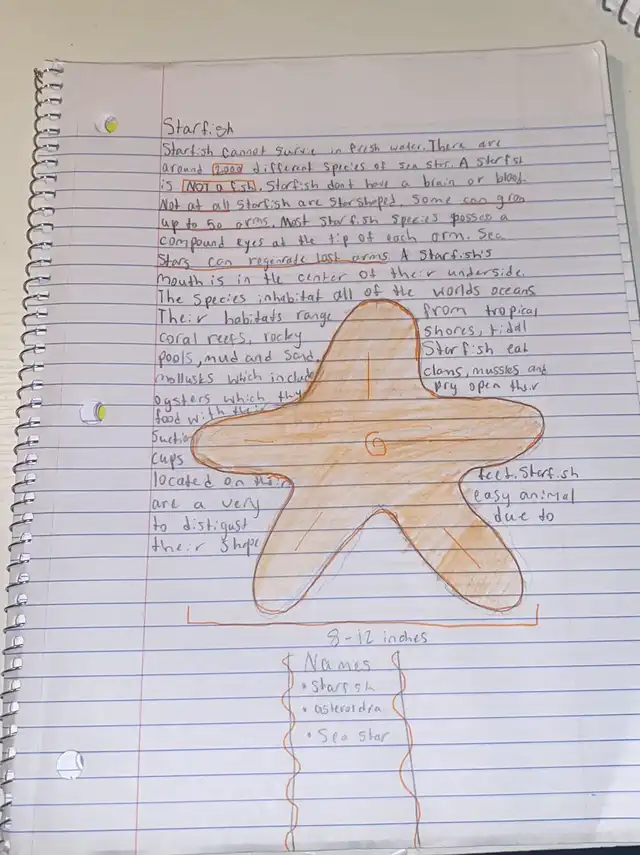 Starfish
Starfish cannot survive in fresh water. There are
around 2,000 different species of sea star. A starfish
is NOT a fish. Starfish dont have a brain or blood.
Not at all starfish are star shaped. Some can grow
up to 50 arms. Most starfish species posses a
compound eyes at the tip of each arm. Sea
stars can regenrate lost arms. A starfish's
mouth is in the center of their underside.
The species inhabitat all of the worlds oceans
Their habitats range from tropical
coral reefs, rocky shores, tidal
pools, mud and sand. Starfish eat
mollusks which include clans, mussles and
oysters which they pry open their
food with their
suction
cups
located on their feet. Starfish
are a very easy animal
to distigust due to
their shape
8-12 inches
Names
• Starfish
• asteroidea
• Sea star